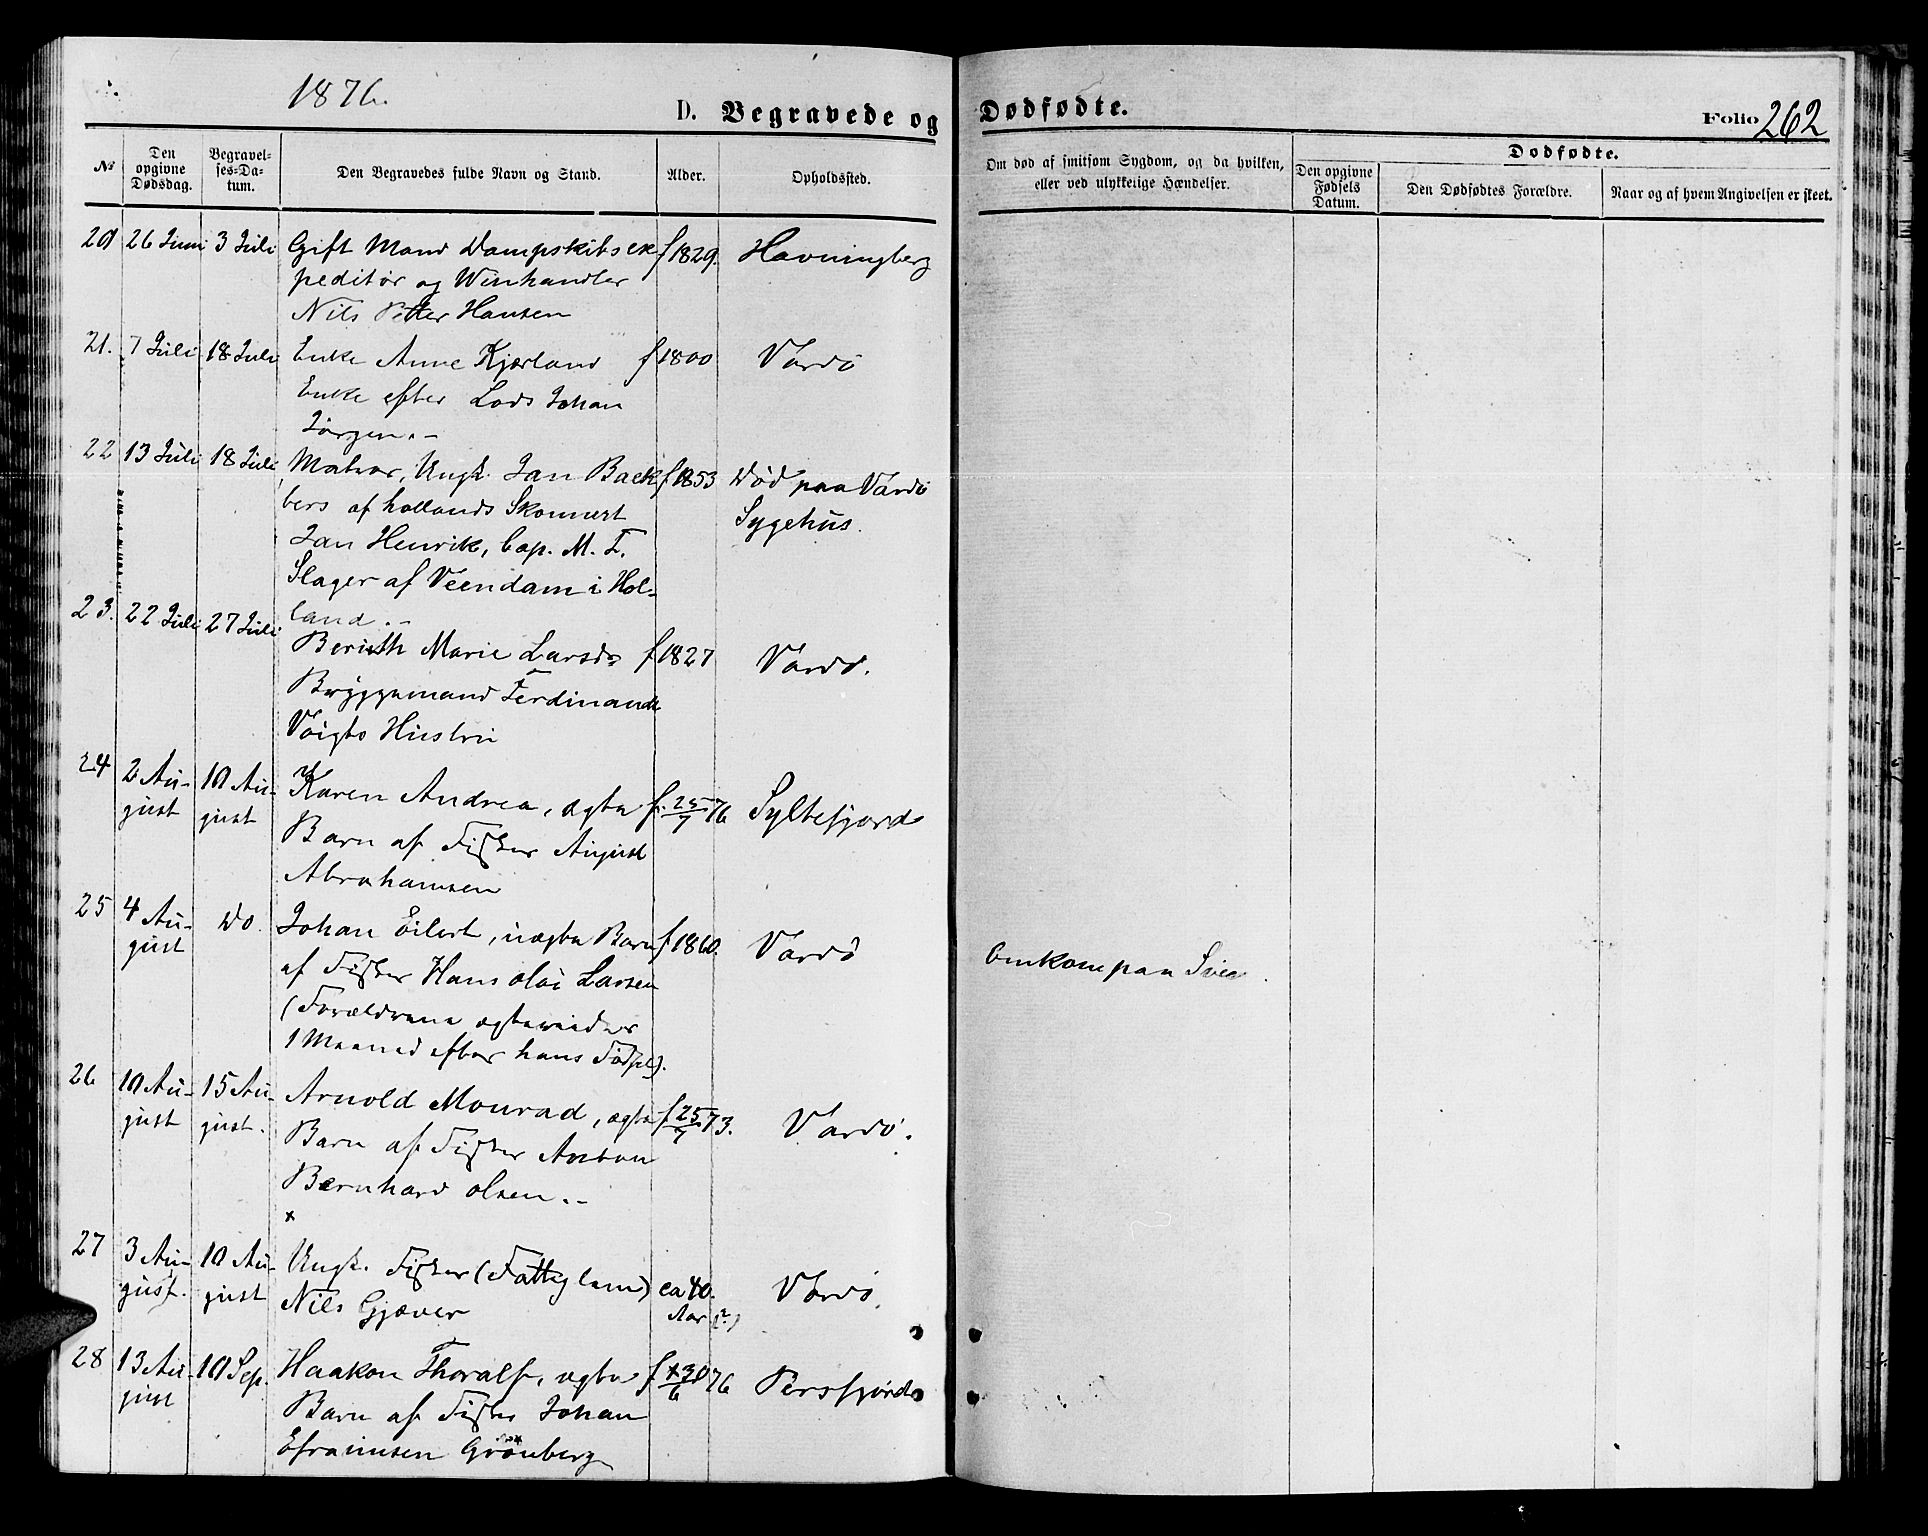 1876.
D. Begravede og Dødfødte.
Folio 262
No
Den opgivne Dødsdag.
Begravelses-Datum.
Den Begravedes fulde Navn og Stand.
Alder.
Opholdssted.
Om død af smitsom Sygdom, og da hvilken,
eller ved ulykkelige Hændelser.
Dødfødte.
Den opgivne Fødsels Datum.
Den Dødfødtes Forældre.
Naar og af hvem Angivelsen er skeet.
20 26 Juni 3 Juli Gift Mand Dampskibsex f 1829. Havningberg
peditør og Winhandler
Nils Petter Hansen
21. 7 Juli 18 Juli Enke Anne Kjærland f 1800 Vardö
Enke efter Lods Johan
Jörgen.-
22 13 Juli 18 Juli Matros, Ungk. Jan Back f 1853 Død paa Vardö
bers af hollandsk Skonnert Sygehus.
Jan Henrik, Cap. M. T.
Slager af Veendam i Hol-
land.-
23. 22 Juli 27 Juli Berith Marie Larsd. f 1827 Vardø.
Bryggemand Ferdinand
Voigts Hustru
24 2 Au- 10 Au- Karen Andrea, ægte f. 25/7 76 Syltefjord
gust gust Barn af Fisker August
Abrahamsen
25 4 Au- Do. Johan Eilert, uægte Barn f 1860. Vardö Omkom paa Söen.
gust af Fisker Hans Olai Larsen
(Forældrene ægteviedes
1 Maaned efter hans Födsel).
26 10 Au- 15 Au- Arnold Monrad, ægte f 25/7 73. Vardö.
gust gust. Barn af Fisker Anton
Bernhard Olsen.-
x
27 3 Au- 10 Au- Ungk. Fisker (Fattiglem) ca 40. Vardö.
gust. gust Nils Gjæver Aar (?)
28 13 Au- 10 Sep. Haakon Thoralf, ægte f 30/6 76 Persfjord
gust Barn af Fisker Johan
Efraimsen Grönberg